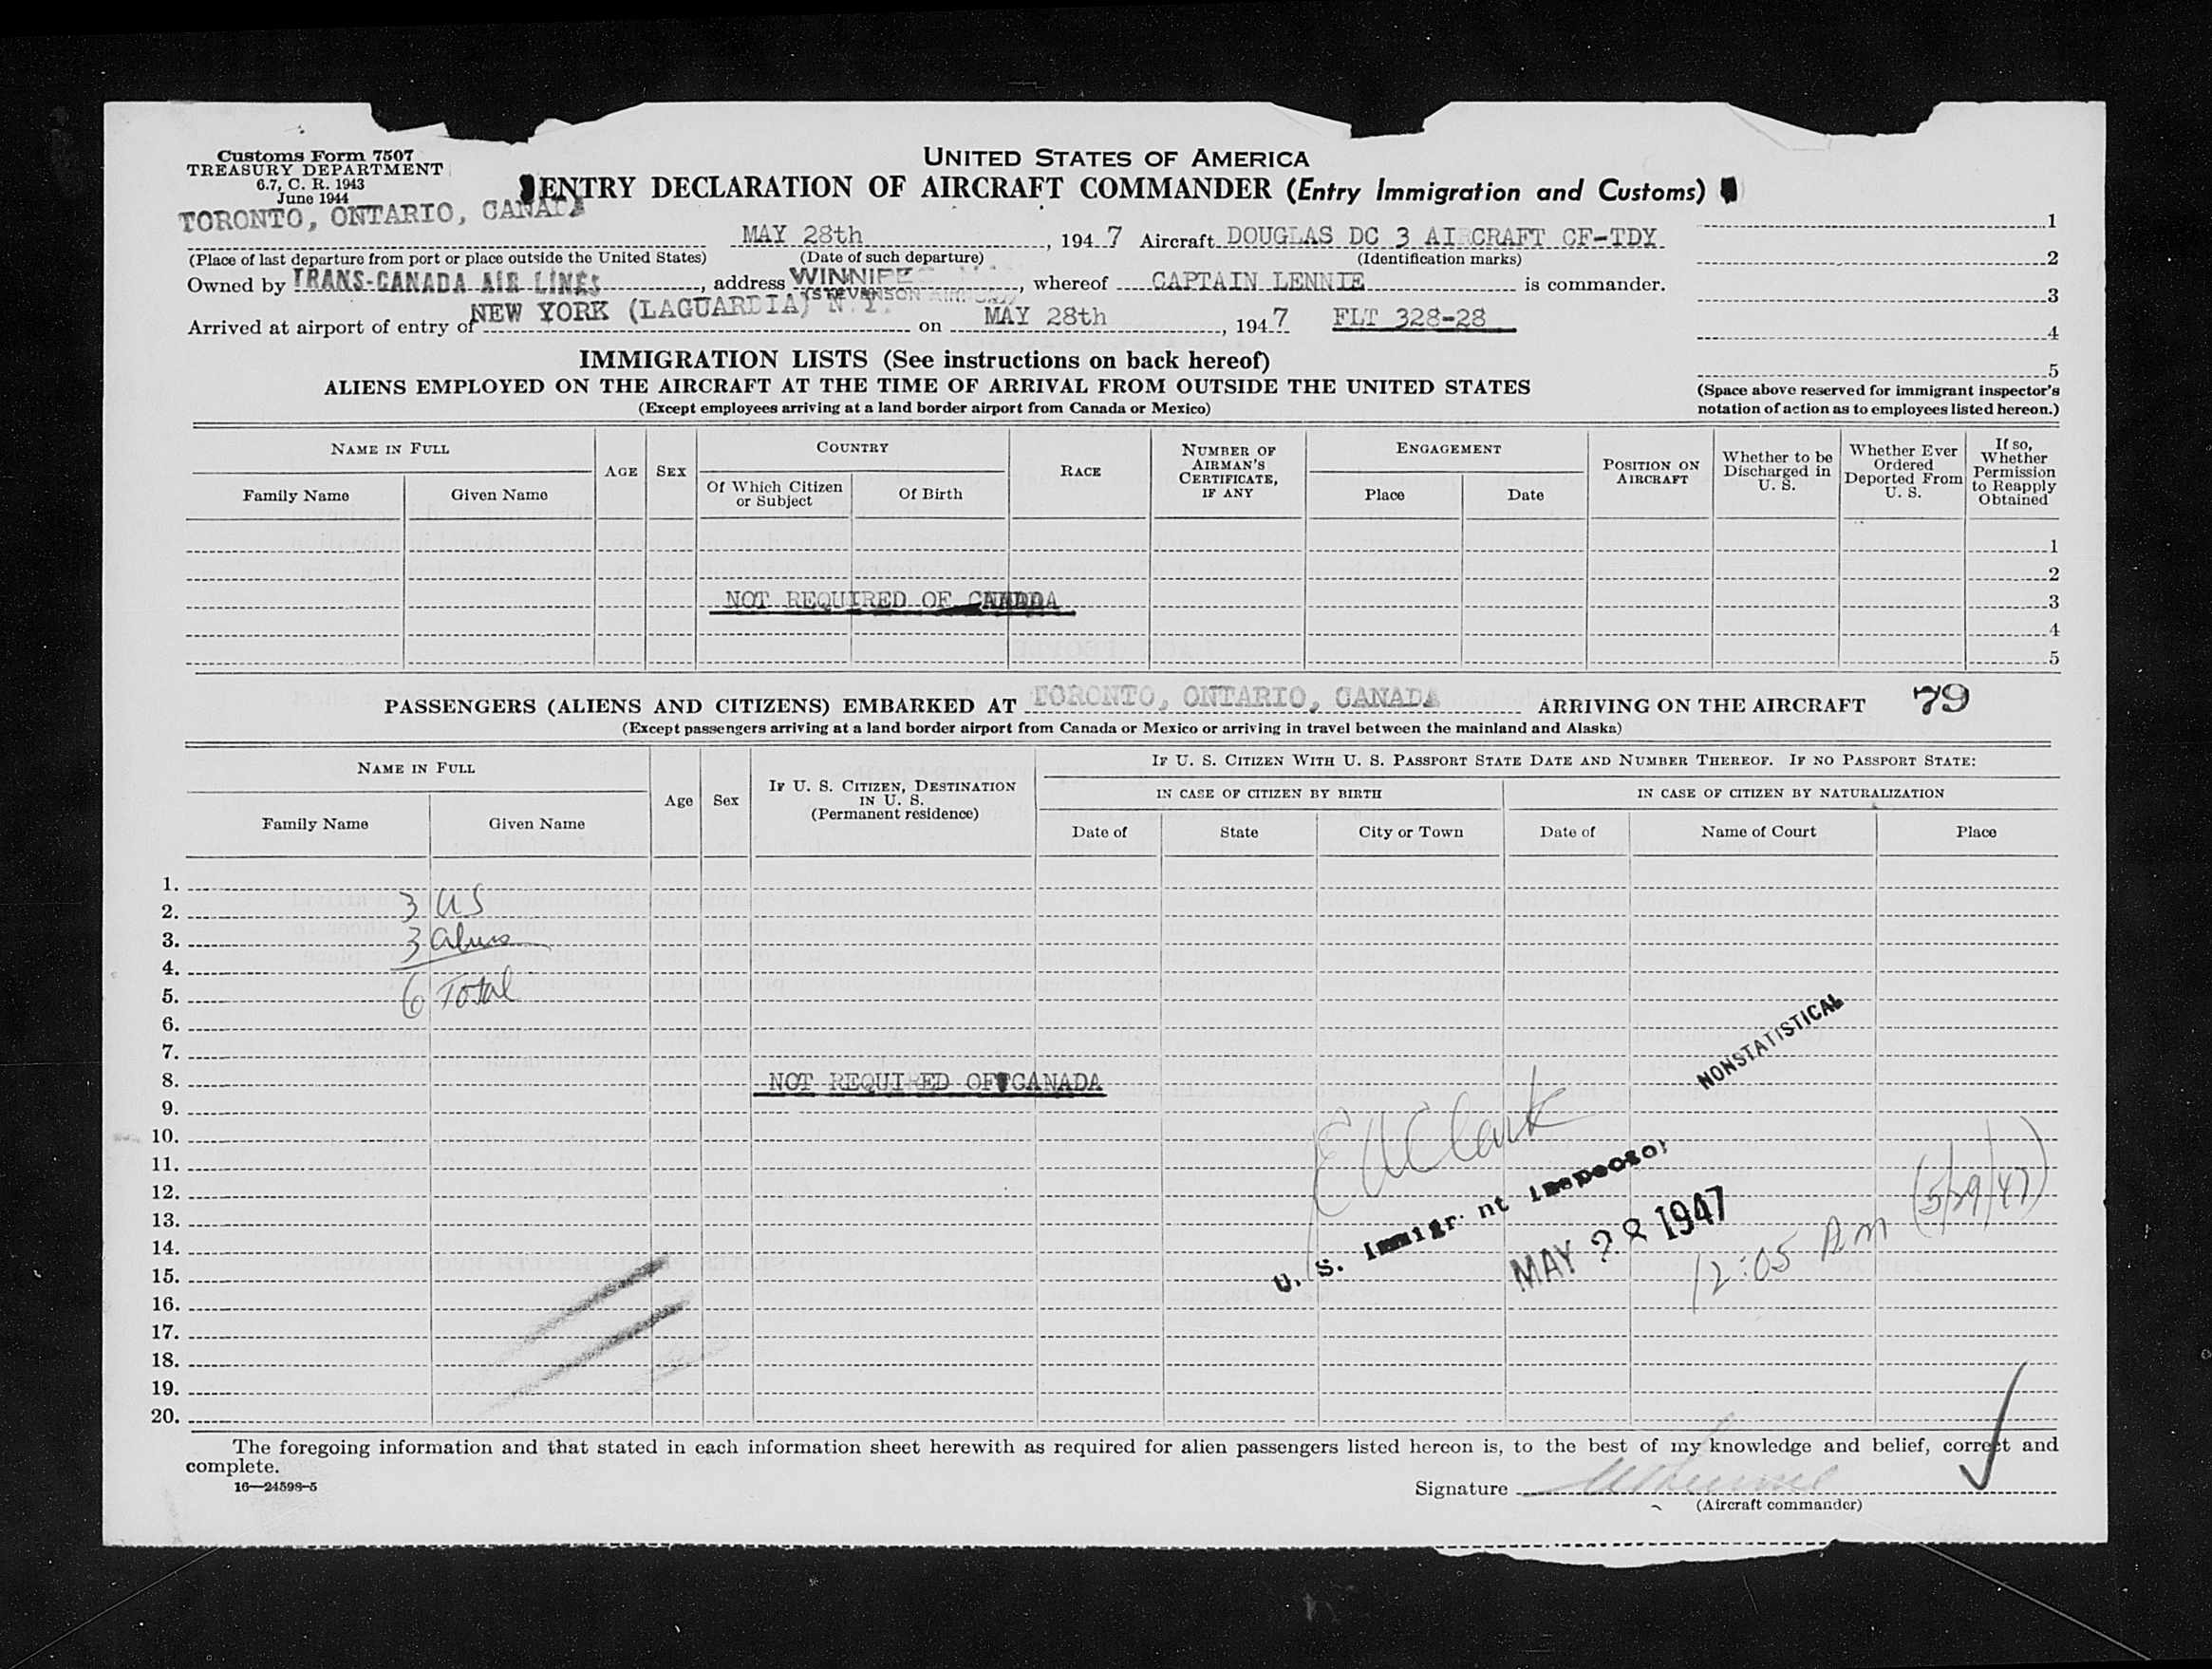 Customs Form 7507
TREASURY DEPARTMENT
6.7, C. R. 1943
June 1944
UNITED STATES OF AMERICA
ENTRY DECLARATION OF AIRCRAFT COMMANDER (Entry Immigration and Customs)
TORONTO, ONTARIO, CANADA
MAY 28th, 1947 Aircraft DOUGLAS DC 3 AI CRAFT CF-TDY
(Place of last departure from port or place outside the United States) (Date of such departure) (Identification marks)
Owned by TRANS-CANADA AIR LINES, address WINNIPE, whereof CAPTAIN LENNIE is commander.
(STEVENSON
Arrived at airport of entry of NEW YORK (LAGUARDIA) N.Y. on MAY 28th, 1947 FLT 328-28
1
2
3
4
5
(Space above reserved for immigrant inspector's
notation of action as to employees listed hereon.)
IMMIGRATION LISTS (See instructions on back hereof)
ALIENS EMPLOYED ON THE AIRCRAFT AT THE TIME OF ARRIVAL FROM OUTSIDE THE UNITED STATES
(Except employees arriving at a land border airport from Canada or Mexico)
NAME IN FULL
Family Name
Given Name
AGE
SEX
COUNTRY
Of Which Citizen
or Subject
Of Birth
RACE
NUMBER OF
AIRMAN'S
CERTIFICATE,
IF ANY
ENGAGEMENT
Place
Date
POSITION ON
AIRCRAFT
Whether to be
Discharged in
U. S.
Whether Ever
Ordered
Deported From
U. S.
If so,
Whether
Permission
to Reapply
Obtained
1
2
NOT REQUIRED OF CANADA 3
4
5
PASSENGERS (ALIENS AND CITIZENS) EMBARKED AT TORONTO, ONTARIO, CANADA ARRIVING ON THE AIRCRAFT 79
(Except passengers arriving at a land border airport from Canada or Mexico or arriving in travel between the mainland and Alaska)
NAME IN FULL
Family Name
Given Name
Age
Sex
IF U. S. CITIZEN, DESTINATION
IN U. S.
(Permanent residence)
IF U. S. CITIZEN WITH U. S. PASSPORT STATE DATE AND NUMBER THEREOF. IF NO PASSPORT STATE:
IN CASE OF CITIZEN BY BIRTH
Date of
State
City or Town
IN CASE OF CITIZEN BY NATURALIZATION
Date of
Name of Court
Place
1.
2. 3 US
3. 3 aliens
4.
5. 6 Total
6.
7.
8. NOT REQUIRED OF CANADA
9.
10.
11.
12.
13.
14.
15.
16.
17.
18.
19.
20.
NONSTATISTICAL
E A Clark
U. S. Immigr nt Inspector
MAY 28 1947
12:05 AM (5/29/47)
The foregoing information and that stated in each information sheet herewith as required for alien passengers listed hereon is, to the best of my knowledge and belief, correct and
complete.
16—24598-5
Signature
(Aircraft commander)